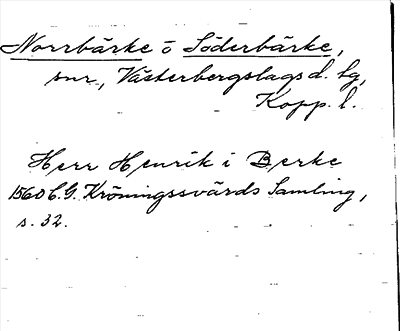 Norrbärke o Söderbärke,
snr., Västerbergslags d. lg,
Kopp. l.
Herr Henrik i Berke
1560 C.G. Kröningssvärds Samling,
s. 32.